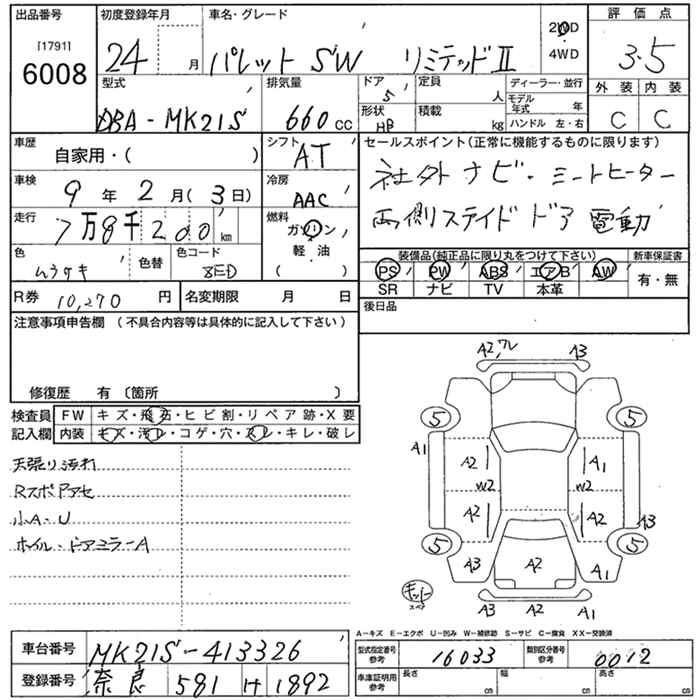 出品番号 初度登録年月 車名・グレード 評価点
[1791]
6008
24 月 パレット SW リミテッドⅡ
2WD
4WD
3.5
型式 排気量 ドア 定員 ディーラー・並行 外装 内装
DBA-MK21S 660 cc 5 人 モデル年式 年
形状 積載 HB kg ハンドル 左・右 C C
車歴 シフト セールスポイント(正常に機能するものに限ります)
自家用・( ) AT
社外ナビ・シートヒーター
車検 冷房
9年 2月(3日) AAC
両側スライドドア電動
走行 燃料
7万8千200km ガソリン
軽油
( )
色 色替 色コード
ムラサキ ZED
装備品(純正品に限り丸をつけて下さい) 新車保証書
PS PW ABS エアB AW
SR ナビ TV 本革 有・無
R券 10,270 円 名変期限 月 日 後日品
注意事項申告欄 (不具合内容等は具体的に記入して下さい)
修復歴 有〔箇所 〕
検査員 FW キズ・飛石・ヒビ割・リペア跡・X要
記入欄 内装 キズ・汚レ・コゲ・穴・スレ・キレ・破レ
天張り汚れ
Rスポアセ
小A・U
ホイル・ドアミラーA
A2,ワレ A3
5 5
A2 A1
W2 W2
A2 A2 A3
5 5
A3 A2 A1
キット
スペア
A3 A2 A1
A-キズ E-エクボ U-凹み W-補修跡 S-サビ C-腐食 XX-交換済
車台番号 MK21S-413326
型式指定番号 参考 16033 類別区分番号 参考 0012
登録番号 奈良 581 け 1892
車庫証明用 参考 長さ cm 幅 cm 高さ cm